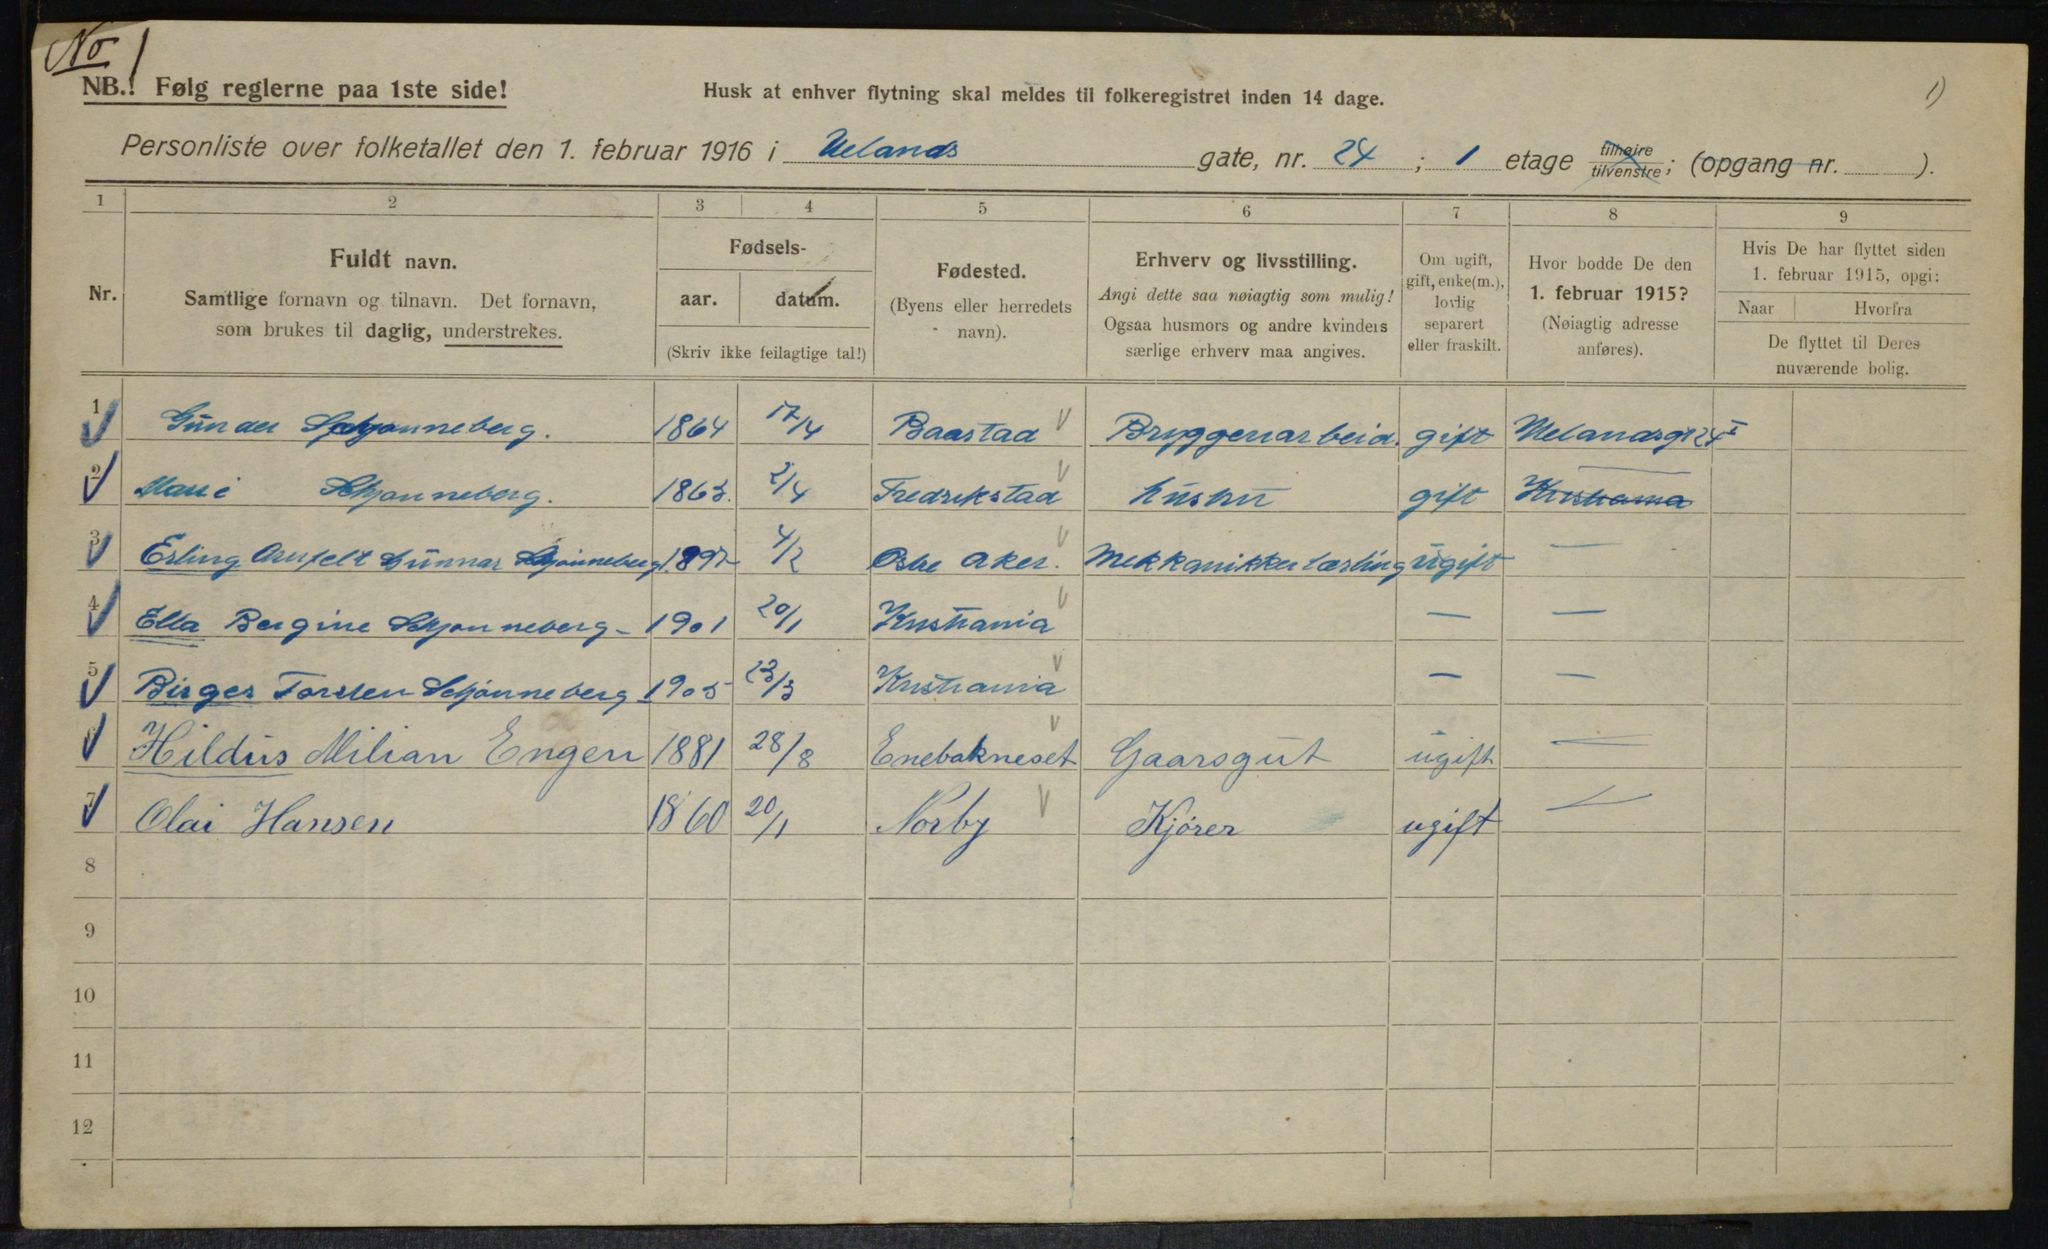 No 1
NB.! Følg reglerne paa 1ste side!
Husk at enhver flytning skal meldes til folkeregistret inden 14 dage.
1)
Personliste over folketallet den 1. februar 1916 i Uelands gate, nr. 24; 1 etage tilhøire tilvenstre; (opgang nr. ).
1 2 3 4 5 6 7 8 9
Nr.
Fuldt navn.
Samtlige fornavn og tilnavn. Det fornavn,
som brukes til daglig, understrekes.
Fødsels-
aar. datum.
(Skriv ikke feilagtige tal!)
Fødested.
(Byens eller herredets
navn).
Erhverv og livsstilling.
Angi dette saa nøiagtig som mulig!
Ogsaa husmors og andre kvinders
særlige erhverv maa angives.
Om ugift,
gift, enke(m.),
lovlig
separert
eller fraskilt.
Hvor bodde De den
1. februar 1915?
(Nøiagtig adresse
anføres).
Hvis De har flyttet siden
1. februar 1915, opgi:
Naar Hvorfra
De flyttet til Deres
nuværende bolig.
1 Gunder Schjønneberg. 1864 17/4 Baastad Bryggeriarbeid. gift Uelandsgt 24 I
2 Marie Schjønneberg. 1863. 2/4 Fredrikstad hustru gift Kristiania
3 Erling Gunnar Schjønneberg. 1897 4/2 Østre Aker. Mekkanikker lærling ugift —
4 Ella Bergine Schjønneberg - 1901 20/1 Kristiania — —
5 Birger Torsten Schjønneberg - 1905 23/3 Kristiania — —
6 Hildus Milian Engen 1881 28/8 Enebakneset Gaarsgut ugift —
7 Olai Hansen 1860 20/1 Norby Kjører ugift —
8
9
10
11
12